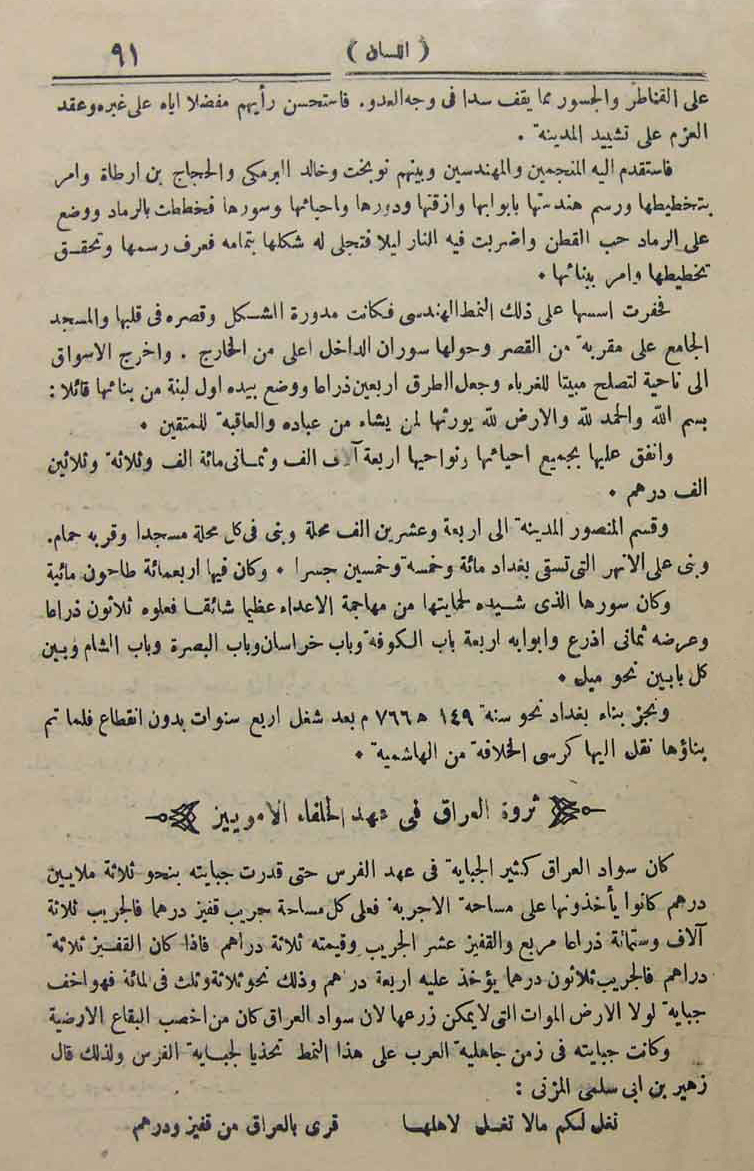 ( اللسان ) ٩١
على القناطر والجسور مما يقف سدا فى وجه العدو. فاستحسن رأيهم مفضلا اياه على غيره وعقد
العزم على تشييد المدينة .
فاستقدم اليه المنجمين والمهندسين وبينهم نوبخت وخالد البرمكى والحجاج بن ارطاة وامر
بتخطيطها ورسم هندستها بابوابها وازقتها ودورها واحيائها وسورها فخططت بالرماد ووضع
على الرماد حب القطن واضربت فيه النار ليلا فتجلى له شكلها بتمامه فعرف رسمها وتحقق
تخطيطها وامر ببنائها .
فحفرت اسسها على ذلك النمط الهندسى فكانت مدورة الشكل وقصره فى قلبها والمسجد
الجامع على مقربة من القصر وحولها سوران الداخل اعلى من الخارج . واخرج الاسواق
الى ناحية لتصلح مبيتا للغرباء وجعل الطرق اربعين ذراعا ووضع بيده اول لبنة من بنائها قائلا :
بسم الله والحمد لله والارض لله يورثها لمن يشاء من عباده والعاقبة للمتقين .
وانفق عليها بجميع احيائها ونواحيها اربعة آلاف الف وثمانى مائة الف وثلاثة وثلاثين
الف درهم .
وقسم المنصور المدينة الى اربعة وعشرين الف محلة وبنى فى كل محلة مسجدا وقربه حمام.
وبنى على الانهر التى تسقى بغداد مائة وخمسة وخمسين جسرا . وكان فيها اربعمائة طاحون مائية
وكان سورها الذى شيده لحمايتها من مهاجمة الاعداء عظيما شائقا فعلوه ثلاثون ذراعا
وعرضه ثمانى اذرع وابوابه اربعة باب الكوفة وباب خراسان وباب البصرة وباب الشام وبين
كل بابين نحو ميل .
ونجز بناء بغداد نحو سنة ١٤٩ ه ٧٦٦ م بعد شغل اربع سنوات بدون انقطاع فلما تم
بناؤها نقل اليها كرسى الخلافة من الهاشمية .
ثروة العراق فى عهد الخلفاء الامويين
كان سواد العراق كثير الجباية فى عهد الفرس حتى قدرت جبايته بنحو ثلاثة ملايين
درهم كانوا يأخذونها على مساحة الاجربة فعلى كل مساحة جريب قفيز درهما فالجريب ثلاثة
آلاف وستمائة ذراعا مربع والقفيز عشر الجريب وقيمته ثلاثة دراهم فاذا كان القفيز ثلاثة
دراهم فالجريب ثلاثون درهما يؤخذ عليه اربعة دراهم وذلك نحو ثلاثة وثلث فى المائة فهو اخف
جباية لولا الارض الموات التى لا يمكن زرعها لان سواد العراق كان من اخصب البقاع الارضية
وكانت جبايته فى زمن جاهلية العرب على هذا النمط تحذيا لجباية الفرس ولذلك قال
زهير بن ابى سلمى المزنى :
تغل لكم مالا تغل لاهلها قرى بالعراق من قفيز ودرهم